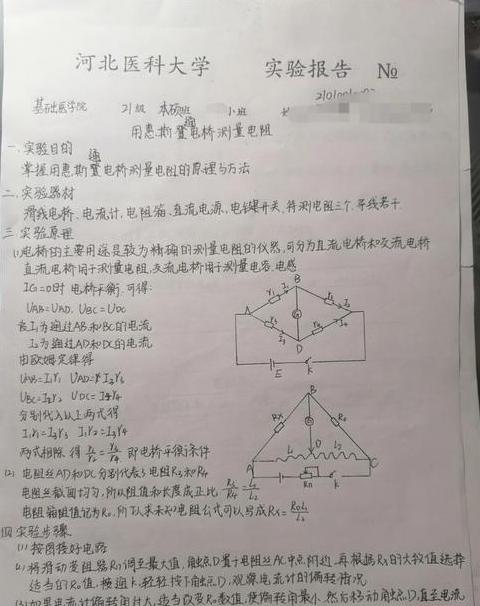 河北医科大学 实验报告 №
基础医学院 21级 本硕班 小班
用惠斯通电桥测量电阻
一、实验目的
掌握用惠斯通电桥测量电阻的原理与方法
二、实验器材
滑线电桥、电流计、电阻箱、直流电源、电键开关、待测电阻三个、导线若干
三、实验原理
(1)电桥的主要用途是较为精确的测量电阻的仪器,可分为直流电桥和交流电桥
直流电桥用于测量电阻,交流电桥用于测量电容、电感
IG=0时 电桥平衡,可得:
UAB=UAD, UBC=UDC
I1为通过AB和BC的电流
I2为通过AD和DC的电流
由欧姆定律得
UAB=I1r1 UAD=I3r3
UBC=I2r2 UDC=I4r4
分别代入以上两式得
I1r1=I3r3 I1r2=I3r4
两式相除 得 r1/r2=r3/r4 即电桥平衡条件
(2) 电阻丝AD和DC分别代表了电阻R3和R4
电阻丝截面均匀,所以阻值和长度成正比 R3/R4=L1/L2
电阻箱阻值记为R0,所以求未知电阻公式可以写成Rx=R0L1/L2
四 实验步骤
(1)按图接好电路
(2)将滑动变阻器Rn调至最大值,触点D置于电阻丝AC中点附近,再根据Rx的大致值选择
适当的R0值,按通K,轻轻按下触点D,观察电流计的偏转情况
(3)如果电流计偏转角过大,适当改变R0数值,使偏转角最小,然后移动触点D,直至电流
A B C D r1 I1 r2 I2 r3 I3 r4 I4 E K
A B C D Rx R0 L1 L2 Rn K